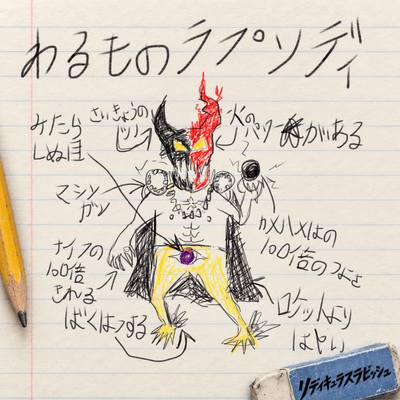 わるものラプソディ
さいきょうの
ツノ
火の
パワーがある
みたら
しぬ目
マシン
ガン
カメハメはの
100倍のつよさ
ナイフの
100倍
きれる
ばくはつする
ロケットより
はやい
リディキュラスラビッシュ